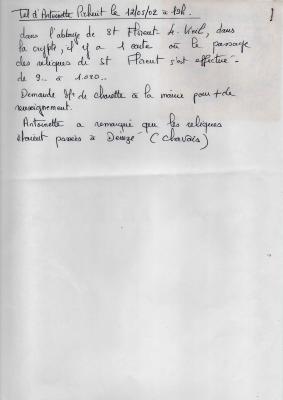 Tel d'Antoinette Pichent le 12/05/02 à 19h.
dans l'abbaye de St Florent le Vieil, dans
la crypte, il y a 1 carte où le passage
des reliques de St Florent s'est effectué
de 9.. à 1.0..
Demande Mr de charette à la mairie pour + de
renseignement.
Antoinette a remarqué que les reliques
étaient passées à Denezé (Chavais)